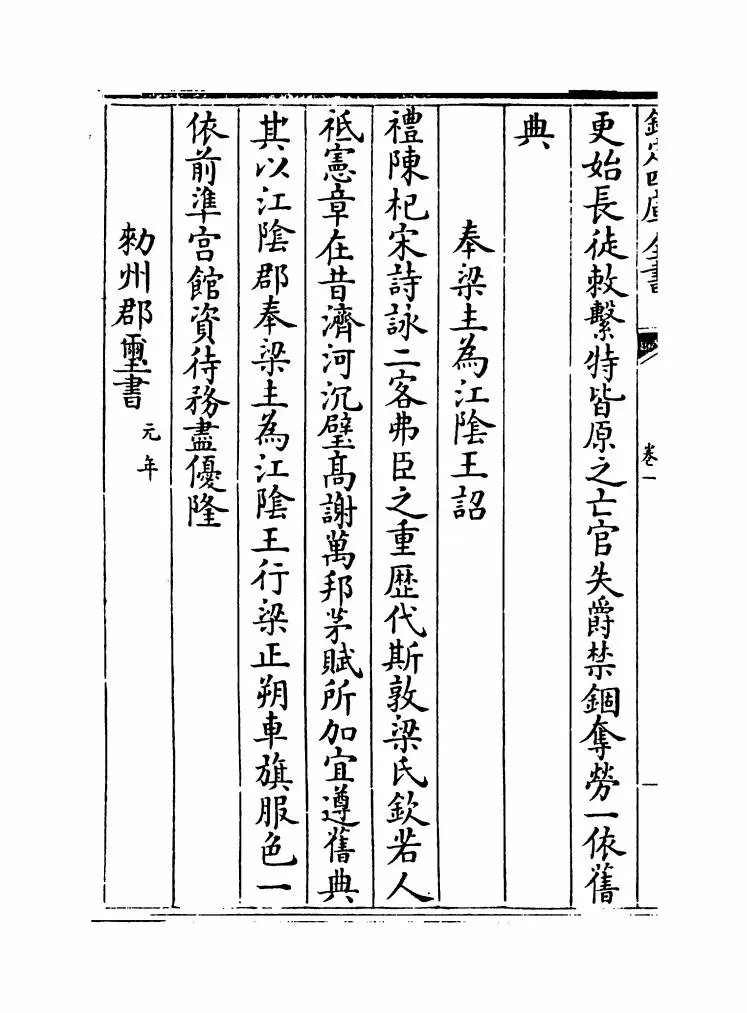 欽定四庫全書
卷一
更始長徒敕繫特皆原之亡官失爵禁錮奪勞一依舊
典
奉梁主為江陰王詔
禮陳杞宋詩詠二客弗臣之重歴代斯敦梁氏欽若人
祗憲章在昔濟河沉璧高謝萬邦茅賦所加宜遵舊典
其以江陰郡奉梁主為江陰王行梁正朔車旗服色一
依前準宫館資待務盡優隆
勑州郡璽書元年